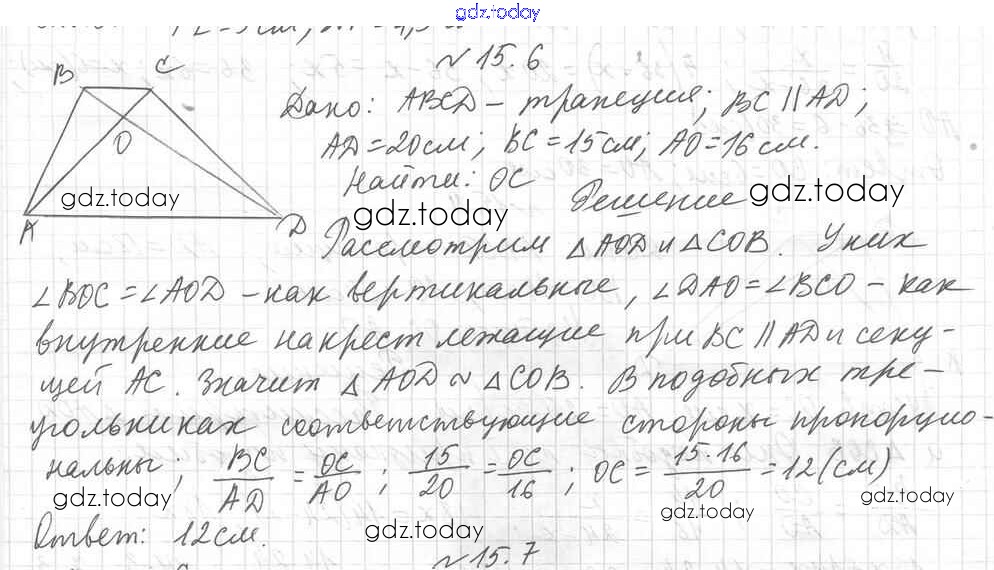 gdz.today
№ 15.6
B C
Дано: ABCD – трапеция; BC || AD;
O
AD = 20 см; BC = 15 см; AO = 16 см.
Найти: OC
gdz.today
gdz.today
gdz.today
Решение
A D
Рассмотрим △AOD и △COB. У них
∠BOC = ∠AOD – как вертикальные, ∠DAO = ∠BCO – как
внутренние накрест лежащие при BC || AD и секу-
щей AC. Значит △AOD ~ △COB. В подобных тре-
угольниках соответствующие стороны пропорцио-
нальны, BC/AD = OC/AO; 15/20 = OC/16; OC = 15·16/20 = 12 (см)
gdz.today
gdz.today
gdz.today
gdz.today
Ответ: 12 см.
№ 15.7